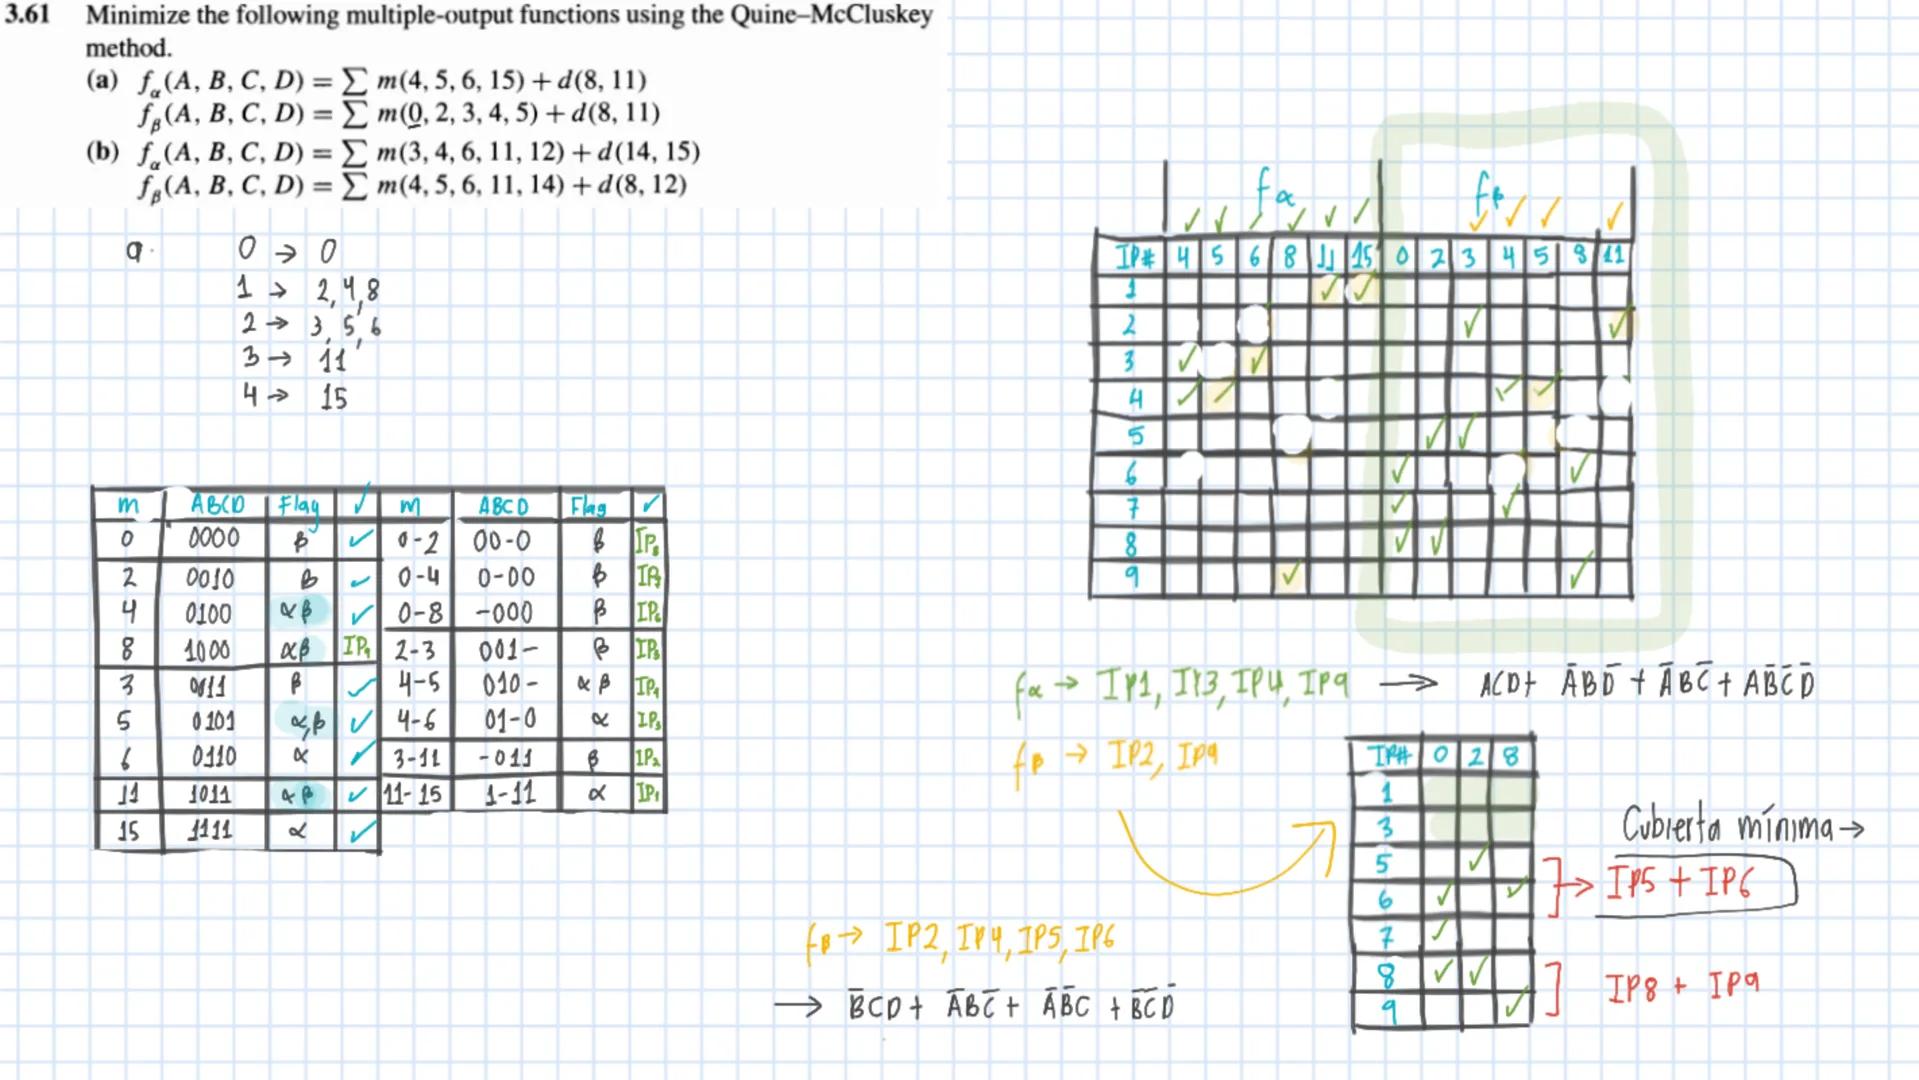 3.61 Minimize the following multiple-output functions using the Quine–McCluskey
method.
(a) fα(A, B, C, D) = ∑ m(4, 5, 6, 15) + d(8, 11)
fβ(A, B, C, D) = ∑ m(0, 2, 3, 4, 5) + d(8, 11)
(b) fα(A, B, C, D) = ∑ m(3, 4, 6, 11, 12) + d(14, 15)
fβ(A, B, C, D) = ∑ m(4, 5, 6, 11, 14) + d(8, 12)
a.
0 → 0
1 → 2, 4, 8
2 → 3, 5, 6
3 → 11
4 → 15
m ABCD Flag ✓ m ABCD Flag ✓
0 0000 β ✓ 0-2 00-0 β IP8
2 0010 β ✓ 0-4 0-00 β IP7
4 0100 αβ ✓ 0-8 -000 β IP6
8 1000 αβ IP9 2-3 001- β IP5
3 0011 β ✓ 4-5 010- αβ IP4
5 0101 α,β ✓ 4-6 01-0 α IP3
6 0110 α ✓ 3-11 -011 β IP2
11 1011 αβ ✓ 11-15 1-11 α IP1
15 1111 α ✓
fα fβ
✓ ✓ ✓ ✓ ✓ ✓ ✓ ✓ ✓ ✓
IP# 4 5 6 8 11 15 0 2 3 4 5 8 11
1 ✓ ✓
2 ✓ ✓
3 ✓ ✓
4 ✓ ✓ ✓ ✓
5 ✓ ✓
6 ✓ ✓
7 ✓ ✓
8 ✓ ✓
9 ✓ ✓
fα → IP1, IP3, IP4, IP9 → ACD + A̅BD̅ + A̅BC̅ + AB̅C̅D̅
fβ → IP2, IP9
IP# 0 2 8
1
3
5 ✓
6 ✓ ✓
7 ✓
8 ✓ ✓
9 ✓
Cubierta mínima →
→ IP5 + IP6
IP8 + IP9
fβ → IP2, IP4, IP5, IP6
→ B̅CD + A̅BC̅ + A̅B̅C + B̅C̅D̅